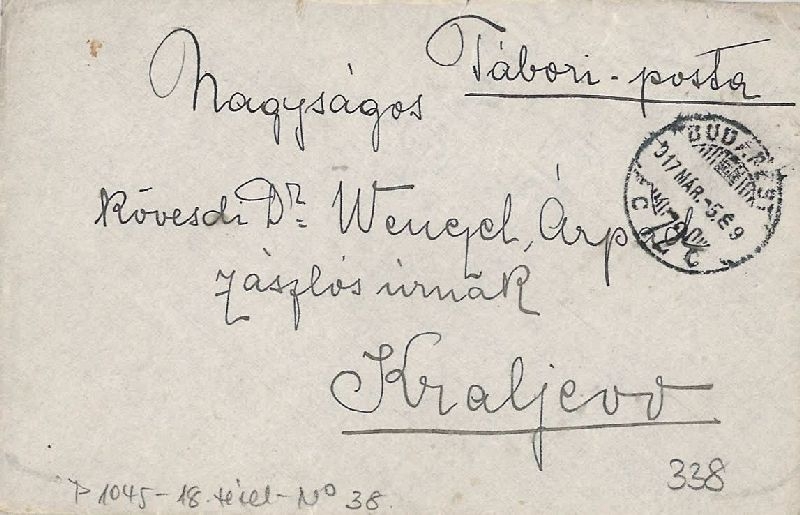 Tábori-posta
Nagyságos
BUDAPEST
917 MÁR.-5.E 9
Kövesdi Dr. Wengel, Árpád
zászlós úrnak
Kraljevo
338
P 1045-18. tétel-No 38.